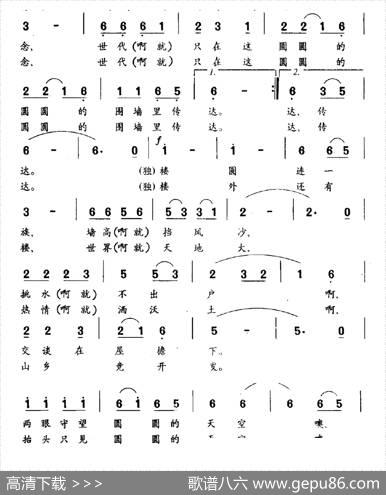 3 - 6 6 6 1 2 3 1 2 2 1 6
念， 世代(啊就) 只在这 圆圆的
念， 世代(啊就) 只在这 圆圆的
1. 2.
2 2 1 6 1 1 6 5 6 - :‖ 6 3 5
圆圆的 围墙里传 达。 达，传
圆圆的 围墙里传 达。 达，传
f
6 - 6· 0 i - i - 6 6 5
达。 (独)楼 圆 连一
达。 (独)楼 外 还有
3 - 6 6 5 6 3 5 3 1 2 - 2· 0
族， 墙高(啊就) 挡风 沙，
楼， 世界(啊就) 天地 大，
2 2 2 3 5 5 3 2 3 2 1 6
挑水(啊就) 不出 户 啊，
热情(啊就) 洒沃 土 啊，
2 2 3 2 1 6 5 - 5 - 5· 0
交谈在 屋檐 下。
山乡 竞开 发。
i i i i 6 i 6 5 6 6 6 5
两眼守望 圆圆的 天空 噢，
抬头只见 圆圆的
高清下载 >>>
歌谱八六 www.gepu86.com